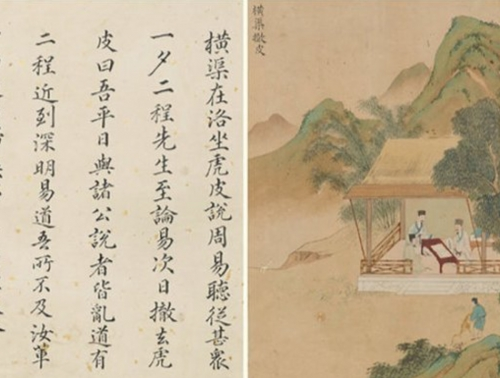 橫渠撤皮
橫渠在洛坐虎皮說周易聽從甚衆
一夕二程先生至論易次日撤去虎
皮曰吾平日與諸公說者皆亂道有
二程近到深明易道吾所不及汝軰